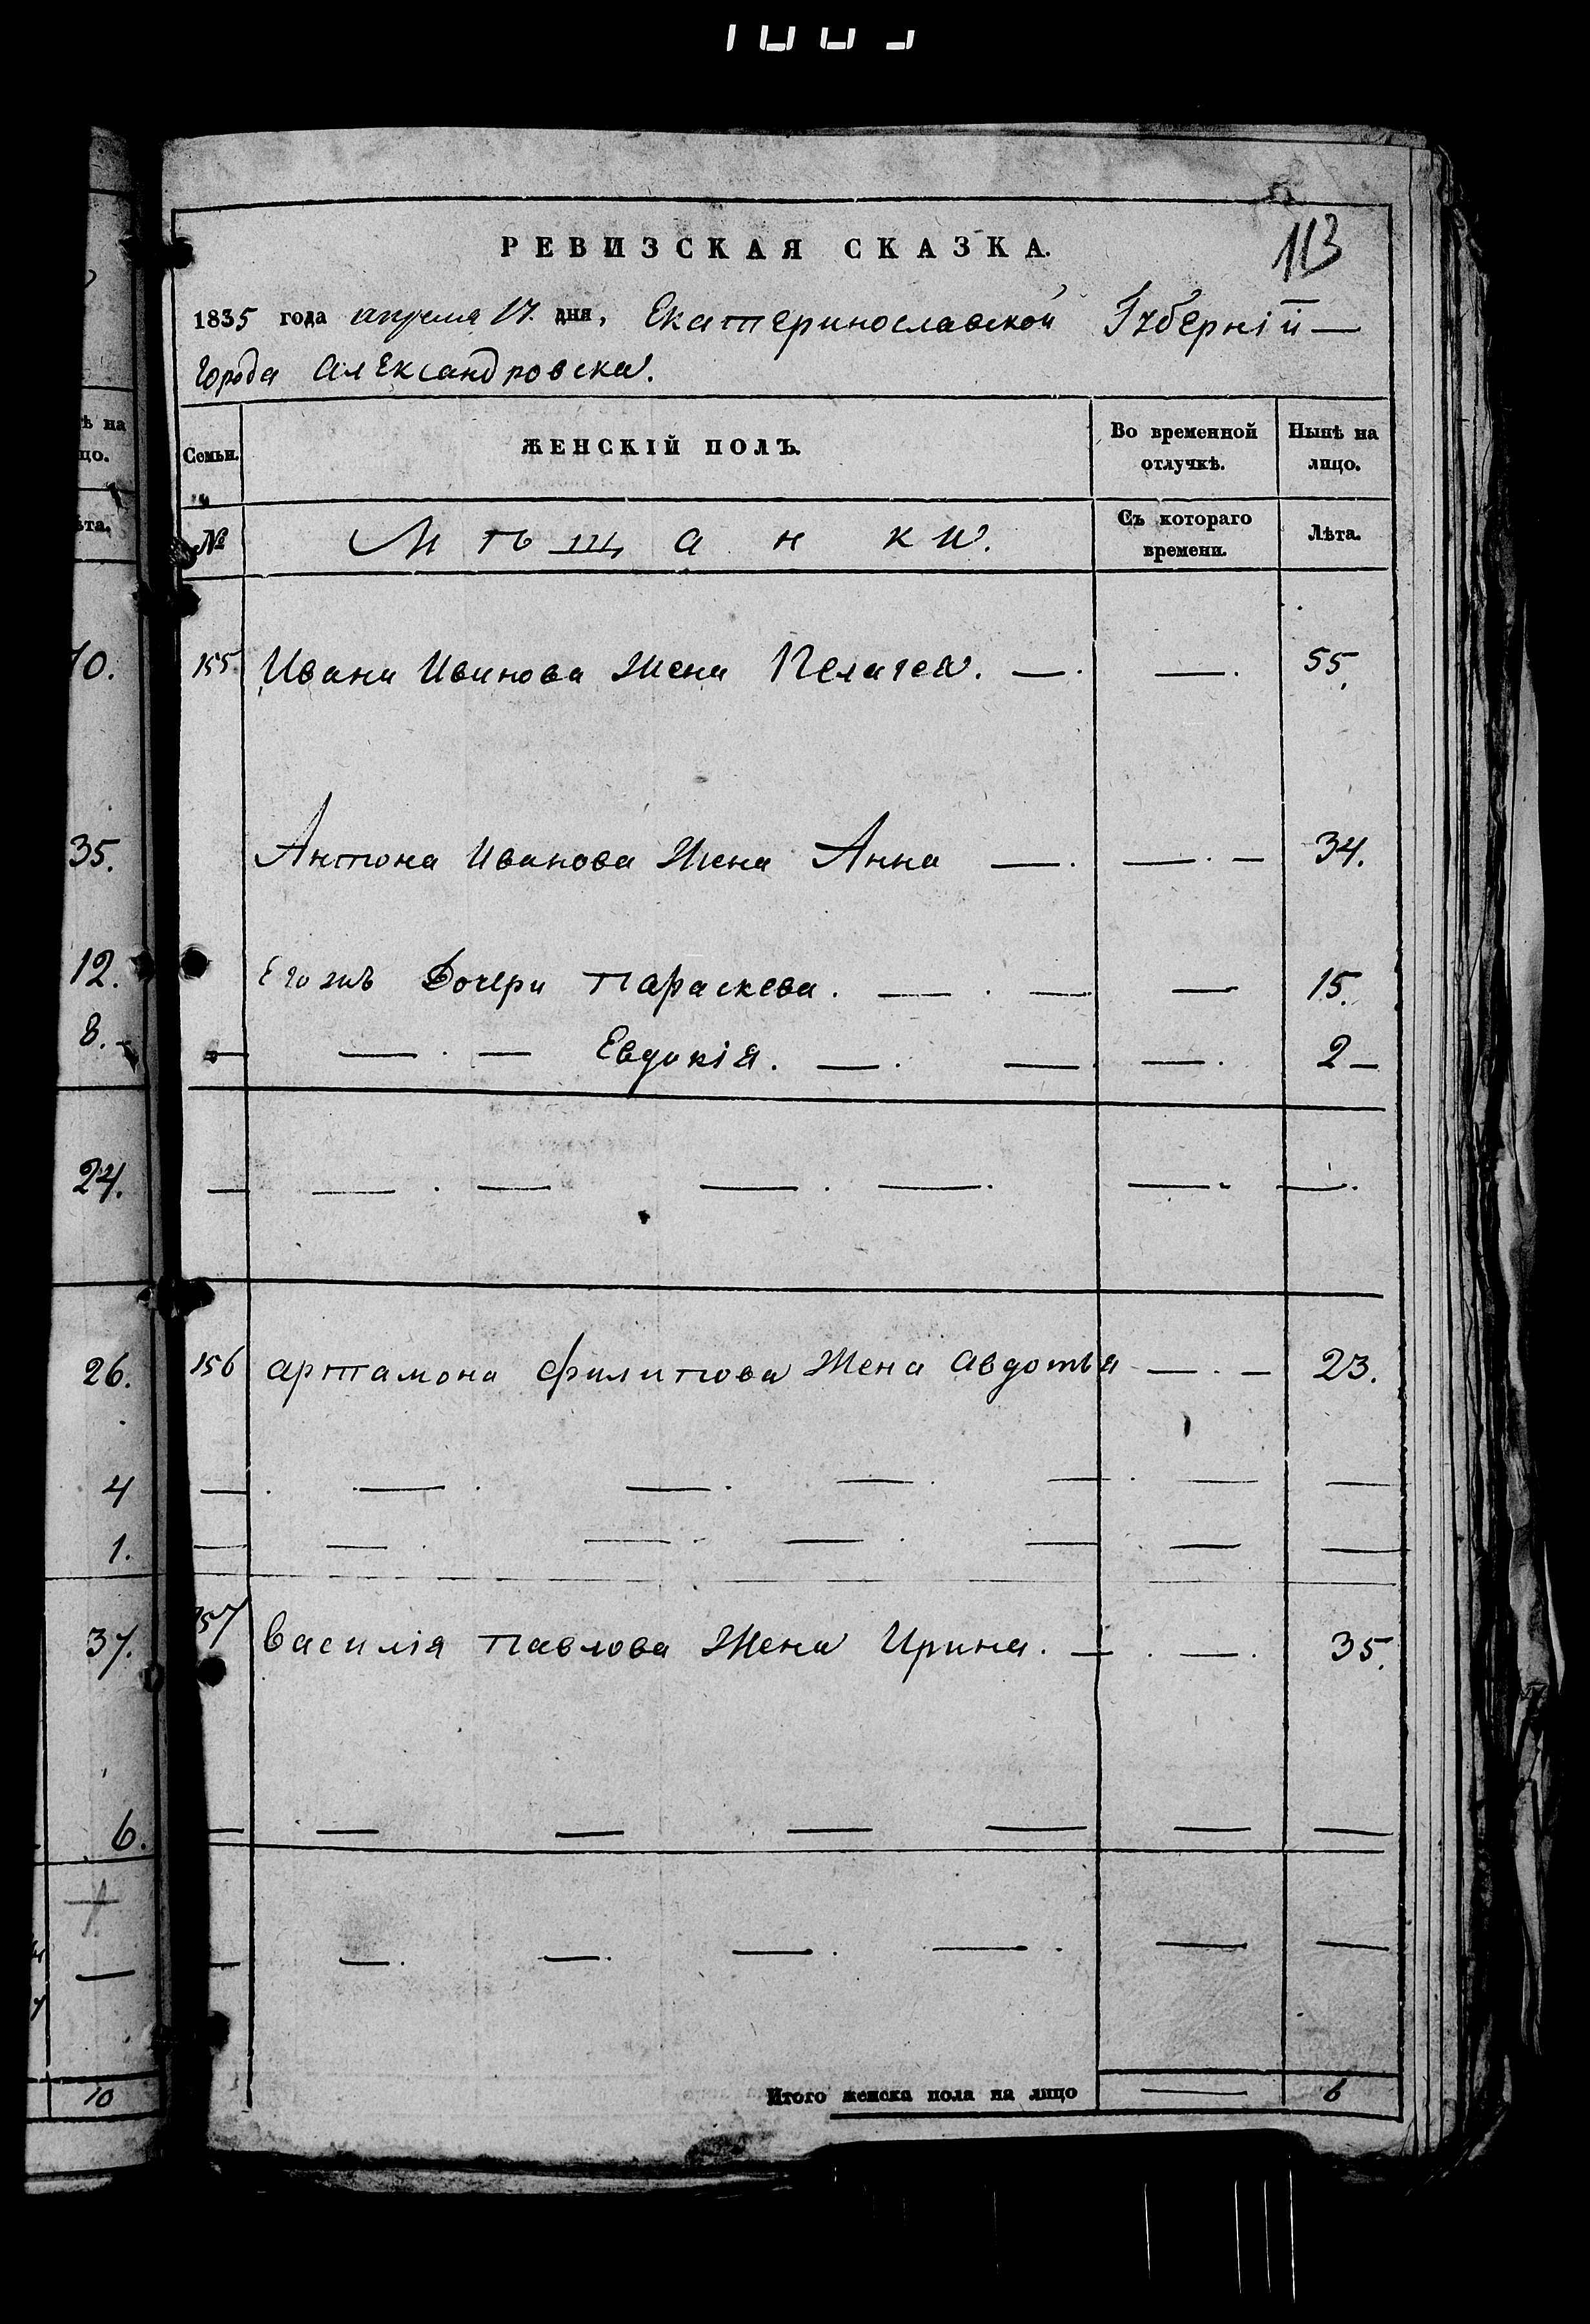 113
РЕВИЗСКАЯ СКАЗКА.
1835 года апреля 17. дня, Екатеринославской Губерніи —
города Александровска.
Семьи. ЖЕНСКІЙ ПОЛЪ. Во временной отлучкѣ. Нынѣ на лицо.
№ Мѣщанки. Съ котораго времени. Лѣта.
155 Ивана Иванова Жена Пелагея. — . — . 55.
Антона Иванова Жена Анна — . — . — 34.
Его жъ Дочери Параскева. — . — — 15.
— — . — Евдокія. — . — — . 2 —
— — . — — . — . — . — .
156 Артамона Филипова Жена Авдотья — . — 23.
— . — . — . — . — . — —
— — . — . — . — — —
157 Василія Павлова Жена Ирина. — . — . 35.
— — — — — — —
— — . — . — . — . — —
Итого женска пола на лицо — 6
ѣ на
цо.
ѣта.
10.
35.
12.
8. -
24.
26.
4
1.
37.
6.
—
10